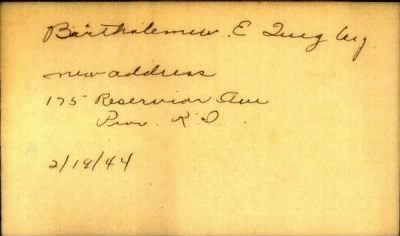 Bartholemew E Quigley
new address
175 Reservior Ave
Prov. R I.
2/18/44